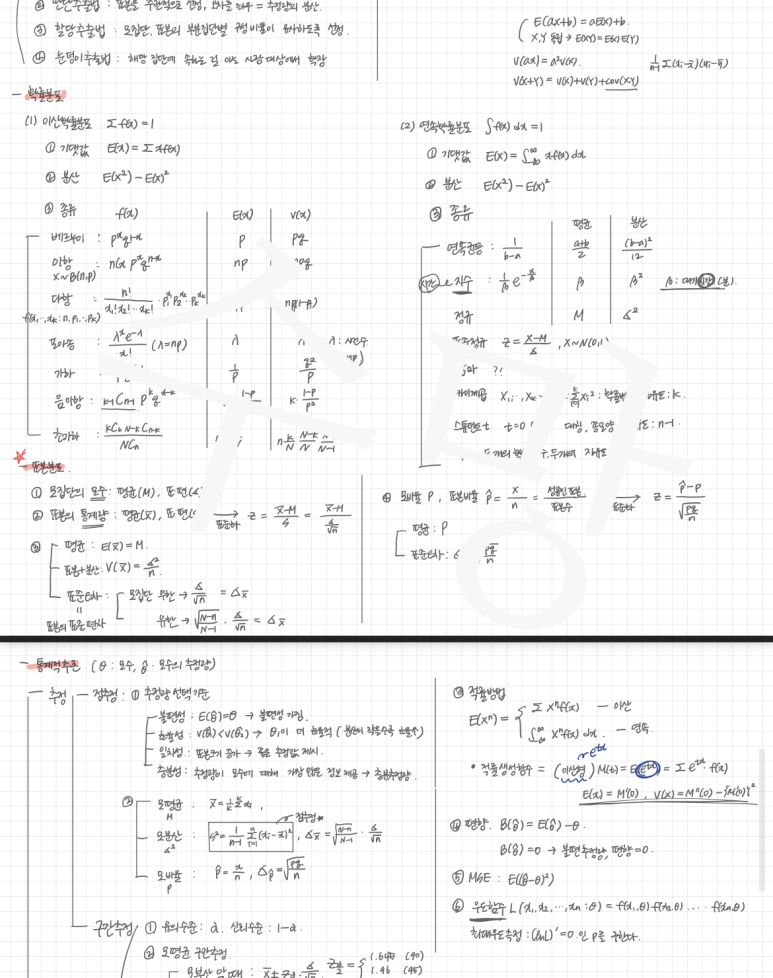 ② 판단추출법 : 표본을 주관적으로 선정, 오차를 최소 = 추정량의 분산.
③ 할당추출법 : 모집단, 표본의 부분집단별 구성 비율이 유사하도록 선정.
④ 눈덩이추출법 : 해당 집단에 속하는 걸 아는 사람 대상에서 확장
E(ax+b) = aE(x)+b.
X,Y 독립 → E(XY)=E(X)E(Y)
V(ax) = a²V(x).
1/n-1 Σ(xi-x̄)(yi-ȳ)
V(X+Y) = V(X)+V(Y)+cov(X,Y)
- 확률분포
(1) 이산확률분포 Σf(x)=1
① 기댓값 E(x)=Σxf(x)
② 분산 E(x²)-E(x)²
③ 종류 f(x) E(x) V(x)
베르누이 : p^x q^1-x p pq
이항 : nCx p^x q^n-x np npq
X~B(n,p)
다항 : n!/x1!x2!…xk! · p1^x1 p2^x2 … pk^xk
포아송 : λ^x e^-λ/x! (λ=np) λ
기하 1/p q²/p
음이항 : k-1Cn-1 p^k q^x-k k·1-p/p²
초기하 : kCx N-kCn-x/NCn
(2) 연속확률분포 ∫f(x)dx=1
① 기댓값 E(x)=∫xf(x)dx
② 분산 E(x²)-E(x)²
③ 종류 평균 분산
연속균등 : 1/b-a a+b/2 (b-a)²/12
지수 : 1/β e^-x/β β β² β: 대기시간(분).
정규 M σ²
표준정규 Z=X-M/σ, X~N(0,1)
감마
카이제곱 자유도:k.
스튜던트t t=0 대칭, 종모양 자유도:n-1.
두개의 자유도
☆ - 표본분포.
① 모집단의 모수: 평균(M), 표.편(σ)
② 표본의 통계량: 평균(x̄), 표.편(s) → 표준화 Z = x̄-M/σ = x̄-M/σ/√n
③ 평균 : E(x̄)=M.
표본분산: V(x̄)=σ²/n.
표준오차 : 모집단 무한 → σ/√n = σx̄
〃
표본의 표준편차 유한 → √N-n/N-1 · σ/√n = σx̄
④ 모비율 P, 표본비율 p̂ = x/n = 성공인 표본/표본수 → 표준화 Z = p̂-p/√pq/n
평균 : P
표준오차 : √pq/n
- 통계적추론 (θ : 모수, θ̂ : 모수의 추정량)
추정 점추정 : ① 추정량 선택기준
불편성 : E(θ̂)=θ → 불편성 가짐.
효율성 : V(θ̂1)<V(θ̂2) → θ̂1이 더 효율적 (분산이 작을수록 효율↑)
일치성 : 표본크기 증가 → 좋은 추정값 제시.
충분성 : 추정량이 모수에 대해 가장 많은 정보 제공 → 충분추정량.
② 모평균 M x̄ = 1/n Σxi,
점추정
모분산 σ² s² = 1/n-1 Σ(xi-x̄)², σx̄ = √N-n/N-1 · σ/√n
모비율 p p̂ = x/n, σp̂ = √pq/n
구간추정 ① 유의수준 : α. 신뢰수준 : 1-α.
② 모평균 구간추정.
모분산 알 때 : x̄ ± Zα/2 · σ/√n Zα/2 = 1.645 (90)
1.96 (95)
③ 적률방법
E(xⁿ) = Σ xⁿf(x) — 이산
∫ xⁿf(x) dx. — 연속.
• 적률생성함수 = (이산형) M(t) = E(e^tx) = Σ e^tx · f(x)
E(x) = M'(0), V(x) = M''(0) - {M'(0)}²
④ 편향. B(θ̂) = E(θ̂)-θ.
B(θ̂)=0 → 불편추정량, 편향=0.
⑤ MSE : E((θ̂-θ)²)
⑥ 우도함수 L(x1,x2,…,xn:θ) = f(x1,θ) f(x2,θ) .... f(xn,θ)
최대우도추정 : (lnL)'=0.인 p를 구한다.
수망